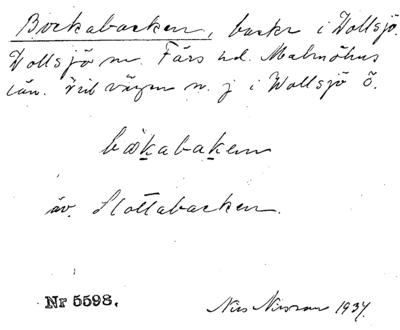 Bockabacken, backe i Vollsjö.
Vollsjö sn. Färs hd. Malmöhus
län. Vid vägen n. j i Vollsjö ö.
bωkabakenn
äv. Slottabacken.
Nr 5598. Nils Nilsson 1937.